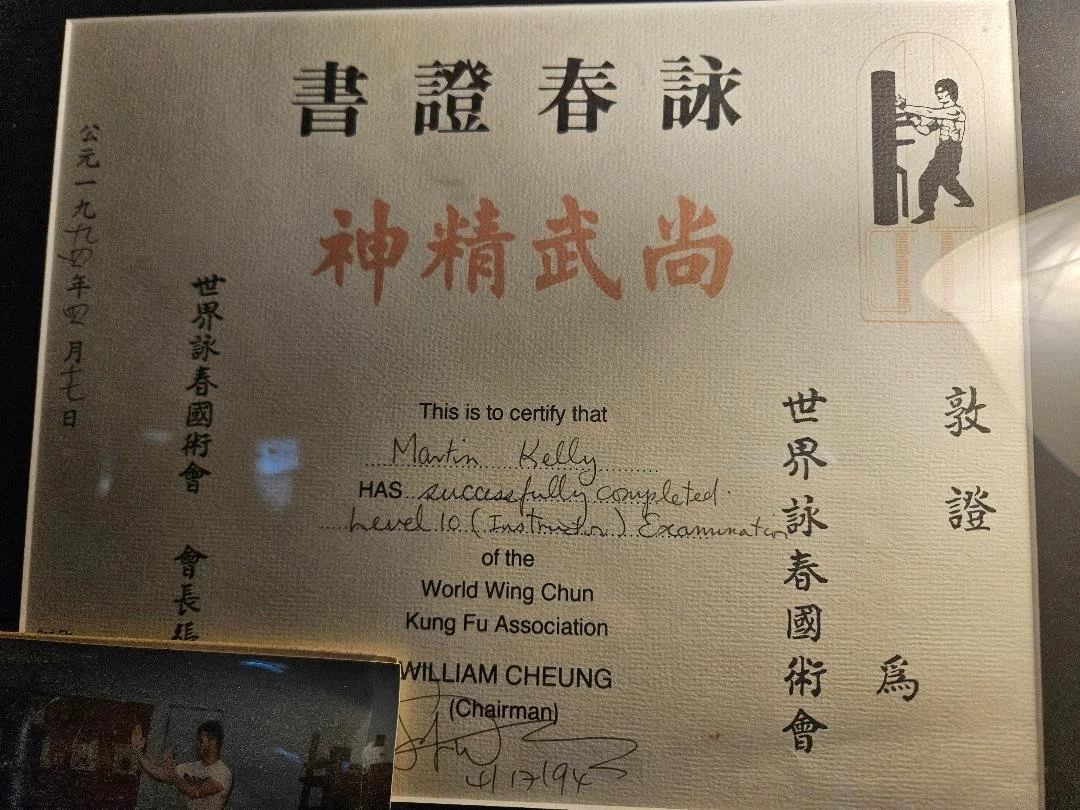 詠春證書
尚武精神
敦證
爲
世界詠春國術會
This is to certify that
Martin Kelly
HAS successfully completed
Level 10 (Instructor) Examination
of the
World Wing Chun
Kung Fu Association
WILLIAM CHEUNG
(Chairman)
4/17/94
世界詠春國術會 會長張
公元一九九四年四月十七日